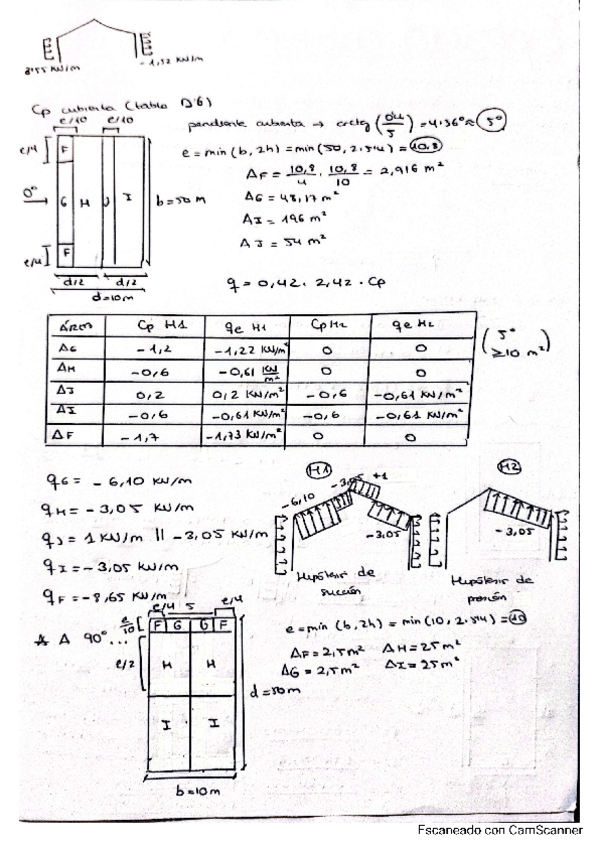 - 1,52 KN/m
Cp cubierta (tabla D6)
e/10 e/10
pendiente cubierta → arctg (0,4/5) = 4.36° ≈ 5°
e = min (b, 2h) = min (50, 2.5,4) = 10,8
e/4 F
ΔF = 10,8/4 . 10,8/10 = 2,916 m²
ΔG = 48,17 m²
0° G H J I b = 50 m
ΔI = 196 m²
ΔJ = 54 m²
e/4 F
d/2 d/2
d = 10m
q = 0,42 . 2,42 . Cp
ÁREAS Cp H1 qe H1 Cp H2 qe H2
ΔG -1,2 -1,22 KN/m² 0 0
ΔH -0,6 -0,61 KN/m² 0 0
ΔJ 0,2 0,2 KN/m² -0,6 -0,61 KN/m²
ΔI -0,6 -0,61 KN/m² -0,6 -0,61 KN/m²
ΔF -1,7 -1,73 KN/m² 0 0
(5° ≥10 m²)
qG = - 6,10 KN/m
qH = - 3,05 KN/m
qJ = 1 KN/m || - 3,05 KN/m
qI = - 3,05 KN/m
qF = - 8,65 KN/m
H1
-6,10 -3,05 +1
-3,05
Hipótesis de
succión
H2
-3,05
Hipótesis de
presión
A 90°...
e/4 5 e/4
e/10 F G G F
e/2 H H
I I
d = 50m
b = 10m
e = min (b, 2h) = min (10, 2.5,4) = 10
ΔF = 2,5 m² ΔH = 25 m²
ΔG = 2,5 m² ΔI = 25 m²
Escaneado con CamScanner